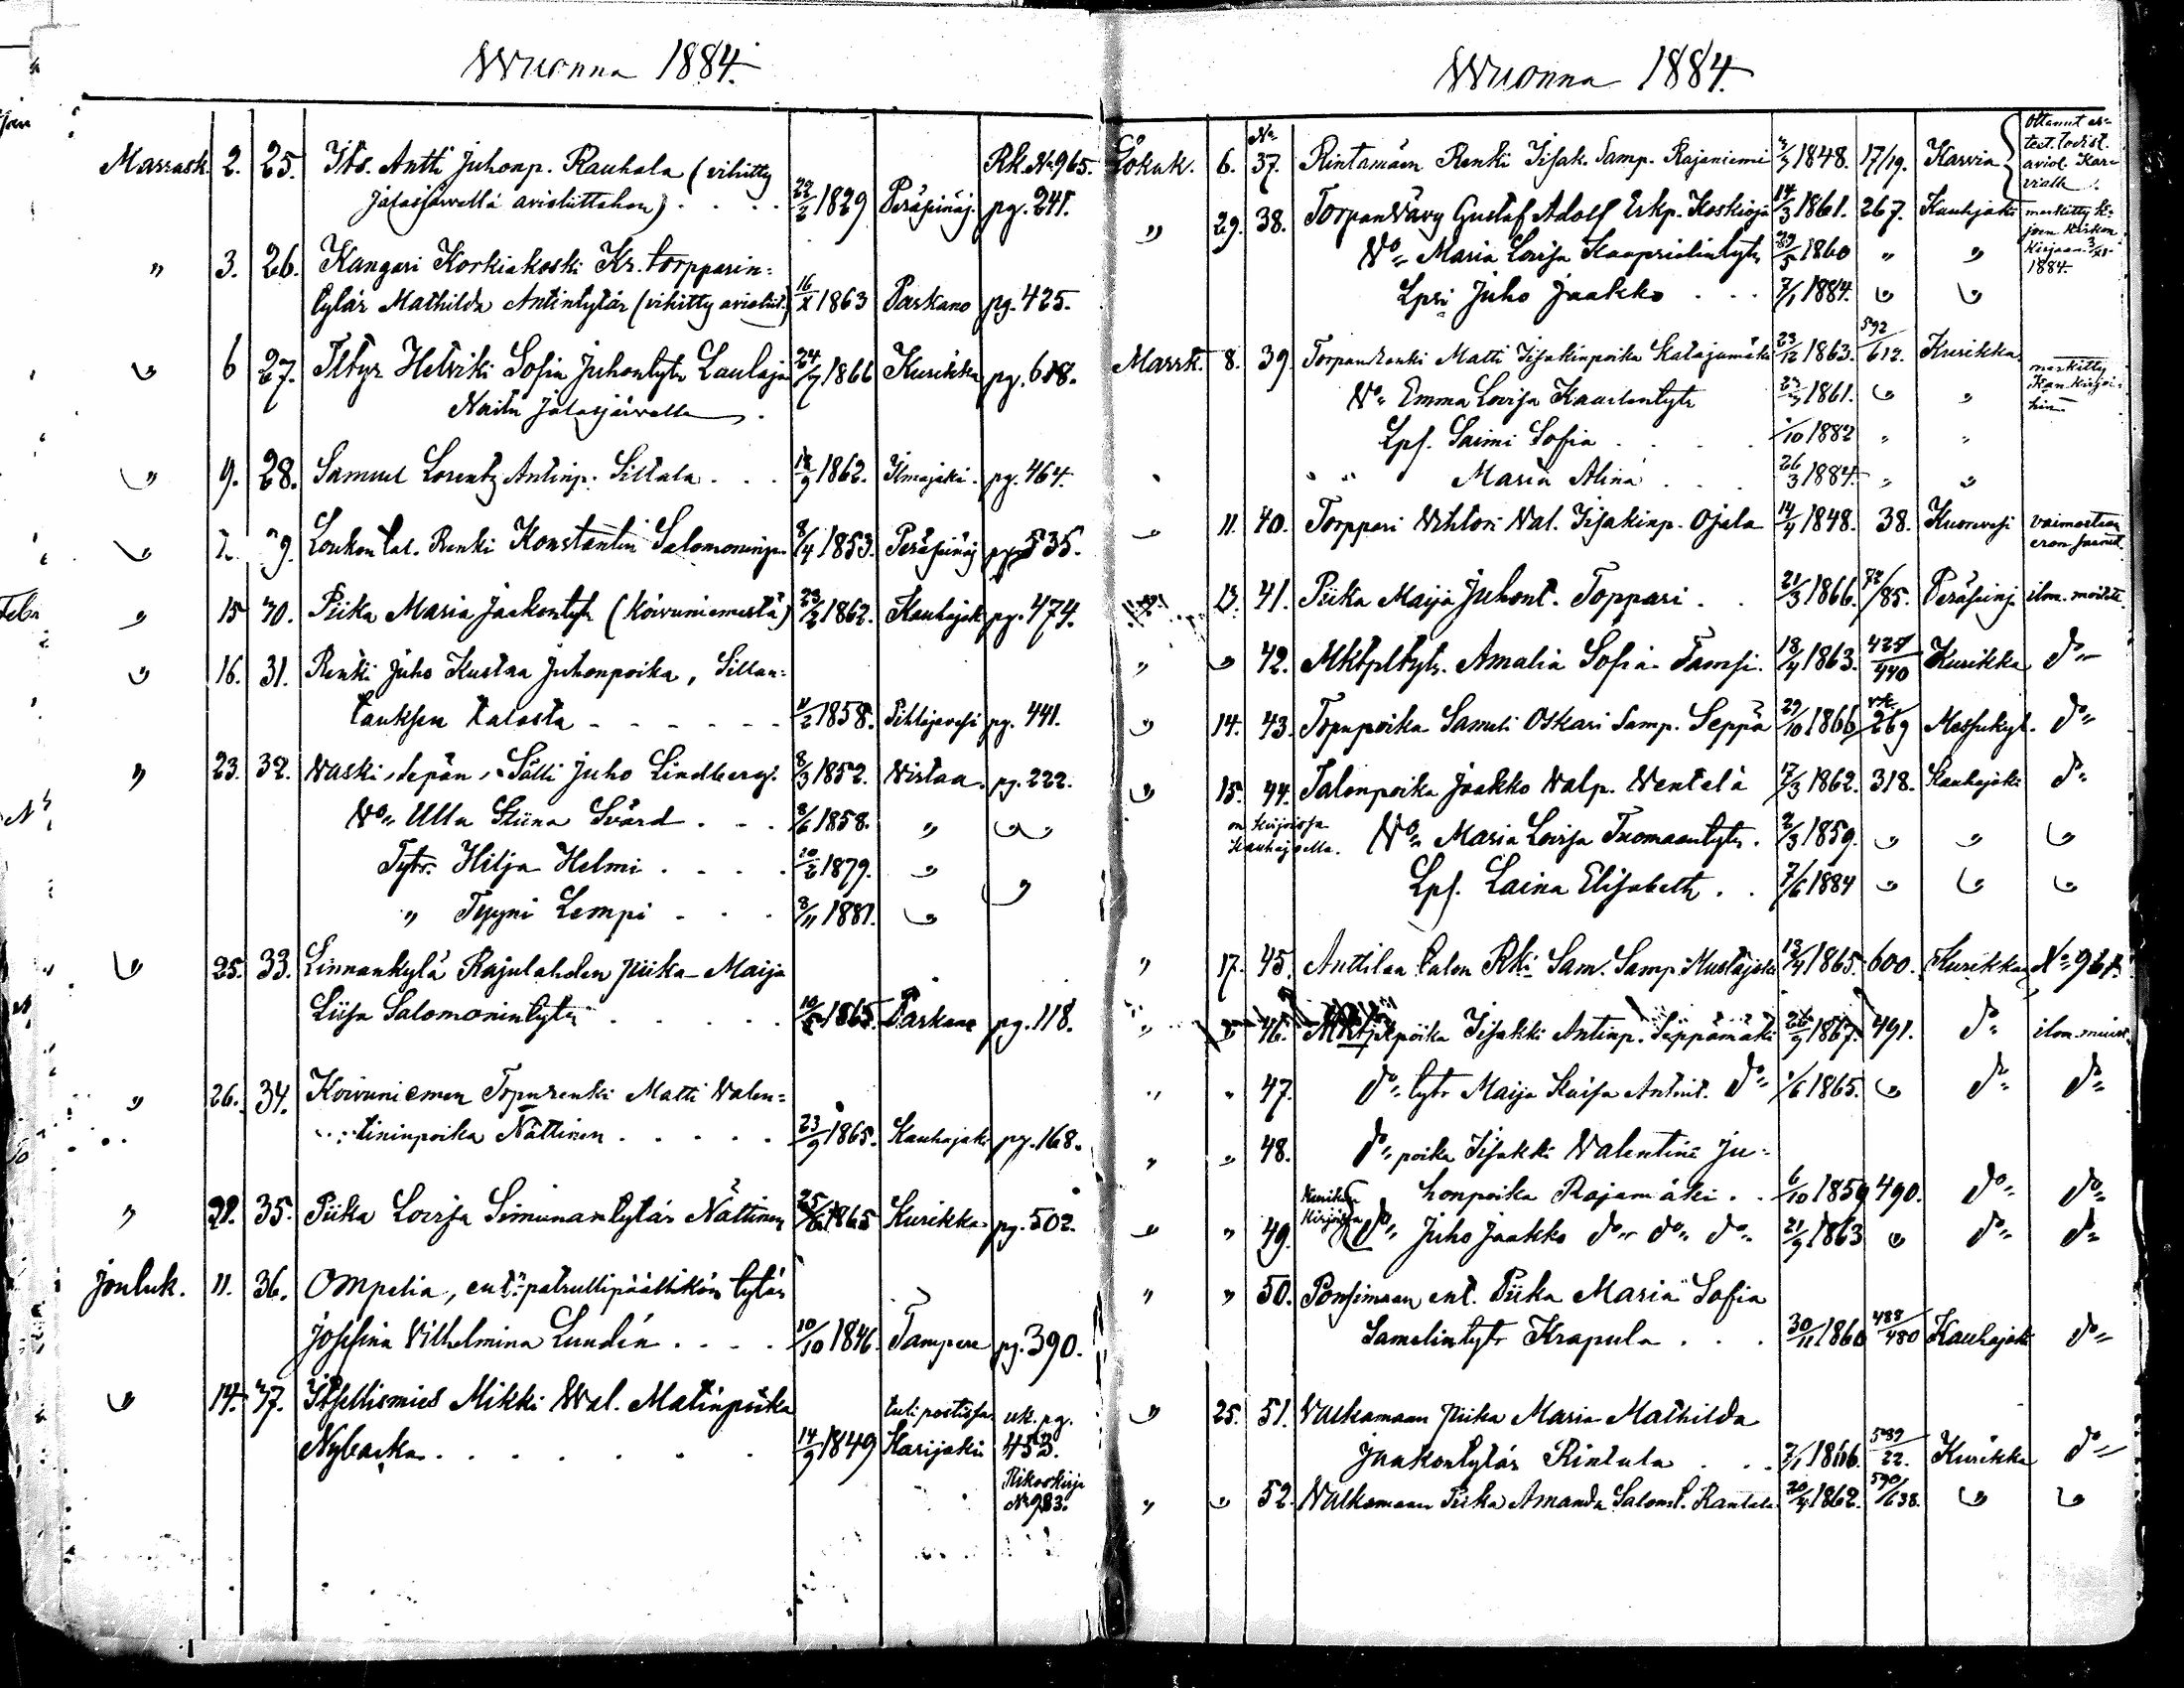 Wuonna 1884.
Marrask. 2. 25. Its. Antti Juhonp. Rauhala (vihitty Rk. No 965.
Jalasjärvellä avioliittohon) . . . . 22/2 1829 Peräseinäj. pg. 241.
" 3. 26. Kangari Korkiakoski Kr. torpparin-
tytär Mathilda Antintytär (vihitty avioliit.) 16/X 1863 Parkano pg. 425.
" 6 27. Heloiki Sofia Juhontytr Laulaja 24/7 1866 Kurikka pg. 608.
Naitu Jalasjärvelle
" 9. 28. Samuel Lorentz Antinp. Siltala . . . 1862. Ilmajoki. pg. 464.
" 9. Loukon tal. Renki Konstantin Salomoninp. 8/4 1853. Peräseinäj pg 535.
" 15 30. Piika Maria Jaakontytr (Koivuniemestä) 23/2 1862. Kauhajok pg. 474.
" 16. 31. Renki Juho Kustaa Juhonpoika, Sillan-
tauksen talosta - - - - - - 1858. Pihlajavesi pg. 441.
" 23. 32. Vaski-sepän Sälli Juho Lindberg. 8/3 1852. Virtaa. pg. 222.
Vo" Ulla Stiina Svärd . . . 8/6 1858. " "
Tytr. Hilja Helmi . . . . 10/2 1879. "
" Tyyni Lempi - . . 8/11 1881. " "
" 25. 33. Linnankylä Rajulahden piika Maija
Liisa Salomonintytr . . . . . 1865. Parkano pg. 118.
" 26. 34. Koivuniemen Tornrenki Matti Valen-
tininpoika Nättinen . . . . . 23/9 1865. Kauhajoki pg. 168.
" 35. Piika Lovisa Simunantytär Nättinen 1865 Kurikka. pg. 502.
Jouluk. 11. 36. Ompelia, ent. patrullipäällikön tytär
Josefina Vilhelmina Lundén . . . . 10/10 1846. Tampere pg. 390.
" 14. 37. Itsellismies Mikki Wal. Matinpoika tuli postissa uk. pg.
Nybacka . . . . . . . 14/9 1849 Karijoki 453.
Rikoskirja
No 983.
Wuonna 1884.
No Ottanut es-
teet. todist.
Lokak. 6. 37. Rintamäen Renki Iisak. Samp. Rajaniemi 1848. 17/19. Karvia aviol. Kar-
vialle.
" 29. 38. Torpanvävy Gustaf Adolf Erkp. Koskioja 14/3 1861. 267. Kauhjoki merkitty K-
joen kirkon
Vo" Maria Lovisa Kaaprielintytr 29/5 1860 " " kirjaan
1884.
Lpsi Juho Jaakko . . . 7/1 1884. " "
Marrk. 8. 39. Torpanrenki Matti Iisakinpoika Katajamäki 23/12 1863. 592/612. Kurikka. merkitty
Vo" Emma Lovisa Kaarlentytr 1861. " "
Lps. Saimi Sofia . . . . /10 1882 " "
" " Maria Alina . . . 26/3 1884. " "
" 11. 40. Torppari Vihtori Val. Iisakinp. Ojala 14/4 1848. 38. Kuorevesi vaimostaan
eron saanut.
13. 41. Piika Maija Juhont. Toppari . . 21/3 1866. 72/85. Peräseinj. ilm.
" " 42. Amalia Sofia Tamsi. 18/4 1863. /440 Kurikka do"
" 14. 43. Torpnpoika Samuli Oskari Samp. Seppä 29/10 1866 269 Messukyl. do"
" 15. 44. Talonpoika Jaakko Valp. Ventelä 17/3 1862. 318. Kauhajoki do"
on kirjoissa
Kauhajoella. Vo" Maria Lovisa Tuomaantytr. 2/3 1859. " " "
Lps. Laina Elisabeth . . 7/6 1884 " " "
" 17. 45. Anttilan talon Rki Sam. Samp. Mustajoki 13/4 1865. 600. Kurikka No 967.
" 46. Iisakki Antinp. Seppämäki 1867. 491. do" ilm. muist.
" " 47. do" tytr Maija Kaisa Antint. do" 1/6 1865. " do" do"
" " 48. do" poika Iisakki Valentini Ju-
honpoika Rajamäki . . 6/10 1859 490. do" do"
Kurikan
kirjoissa
" " 49. do" Juho Jaakko do" do" do" 21/9 1863 " do" do"
" " 50. Ponsimaan ent. Piika Maria Sofia
Samelintytr Krapula . . . 30/11 1860 488/480 Kauhajoki do"
" 25. 51. Valkamaan piika Maria Mathilda
Jaakontytär Rintala . . . 1866. 589/22. Kurikka do"
" " 52. Valkamaan Piika Amanda Salomt. Rantala 20/4 1862. 590/638. " "